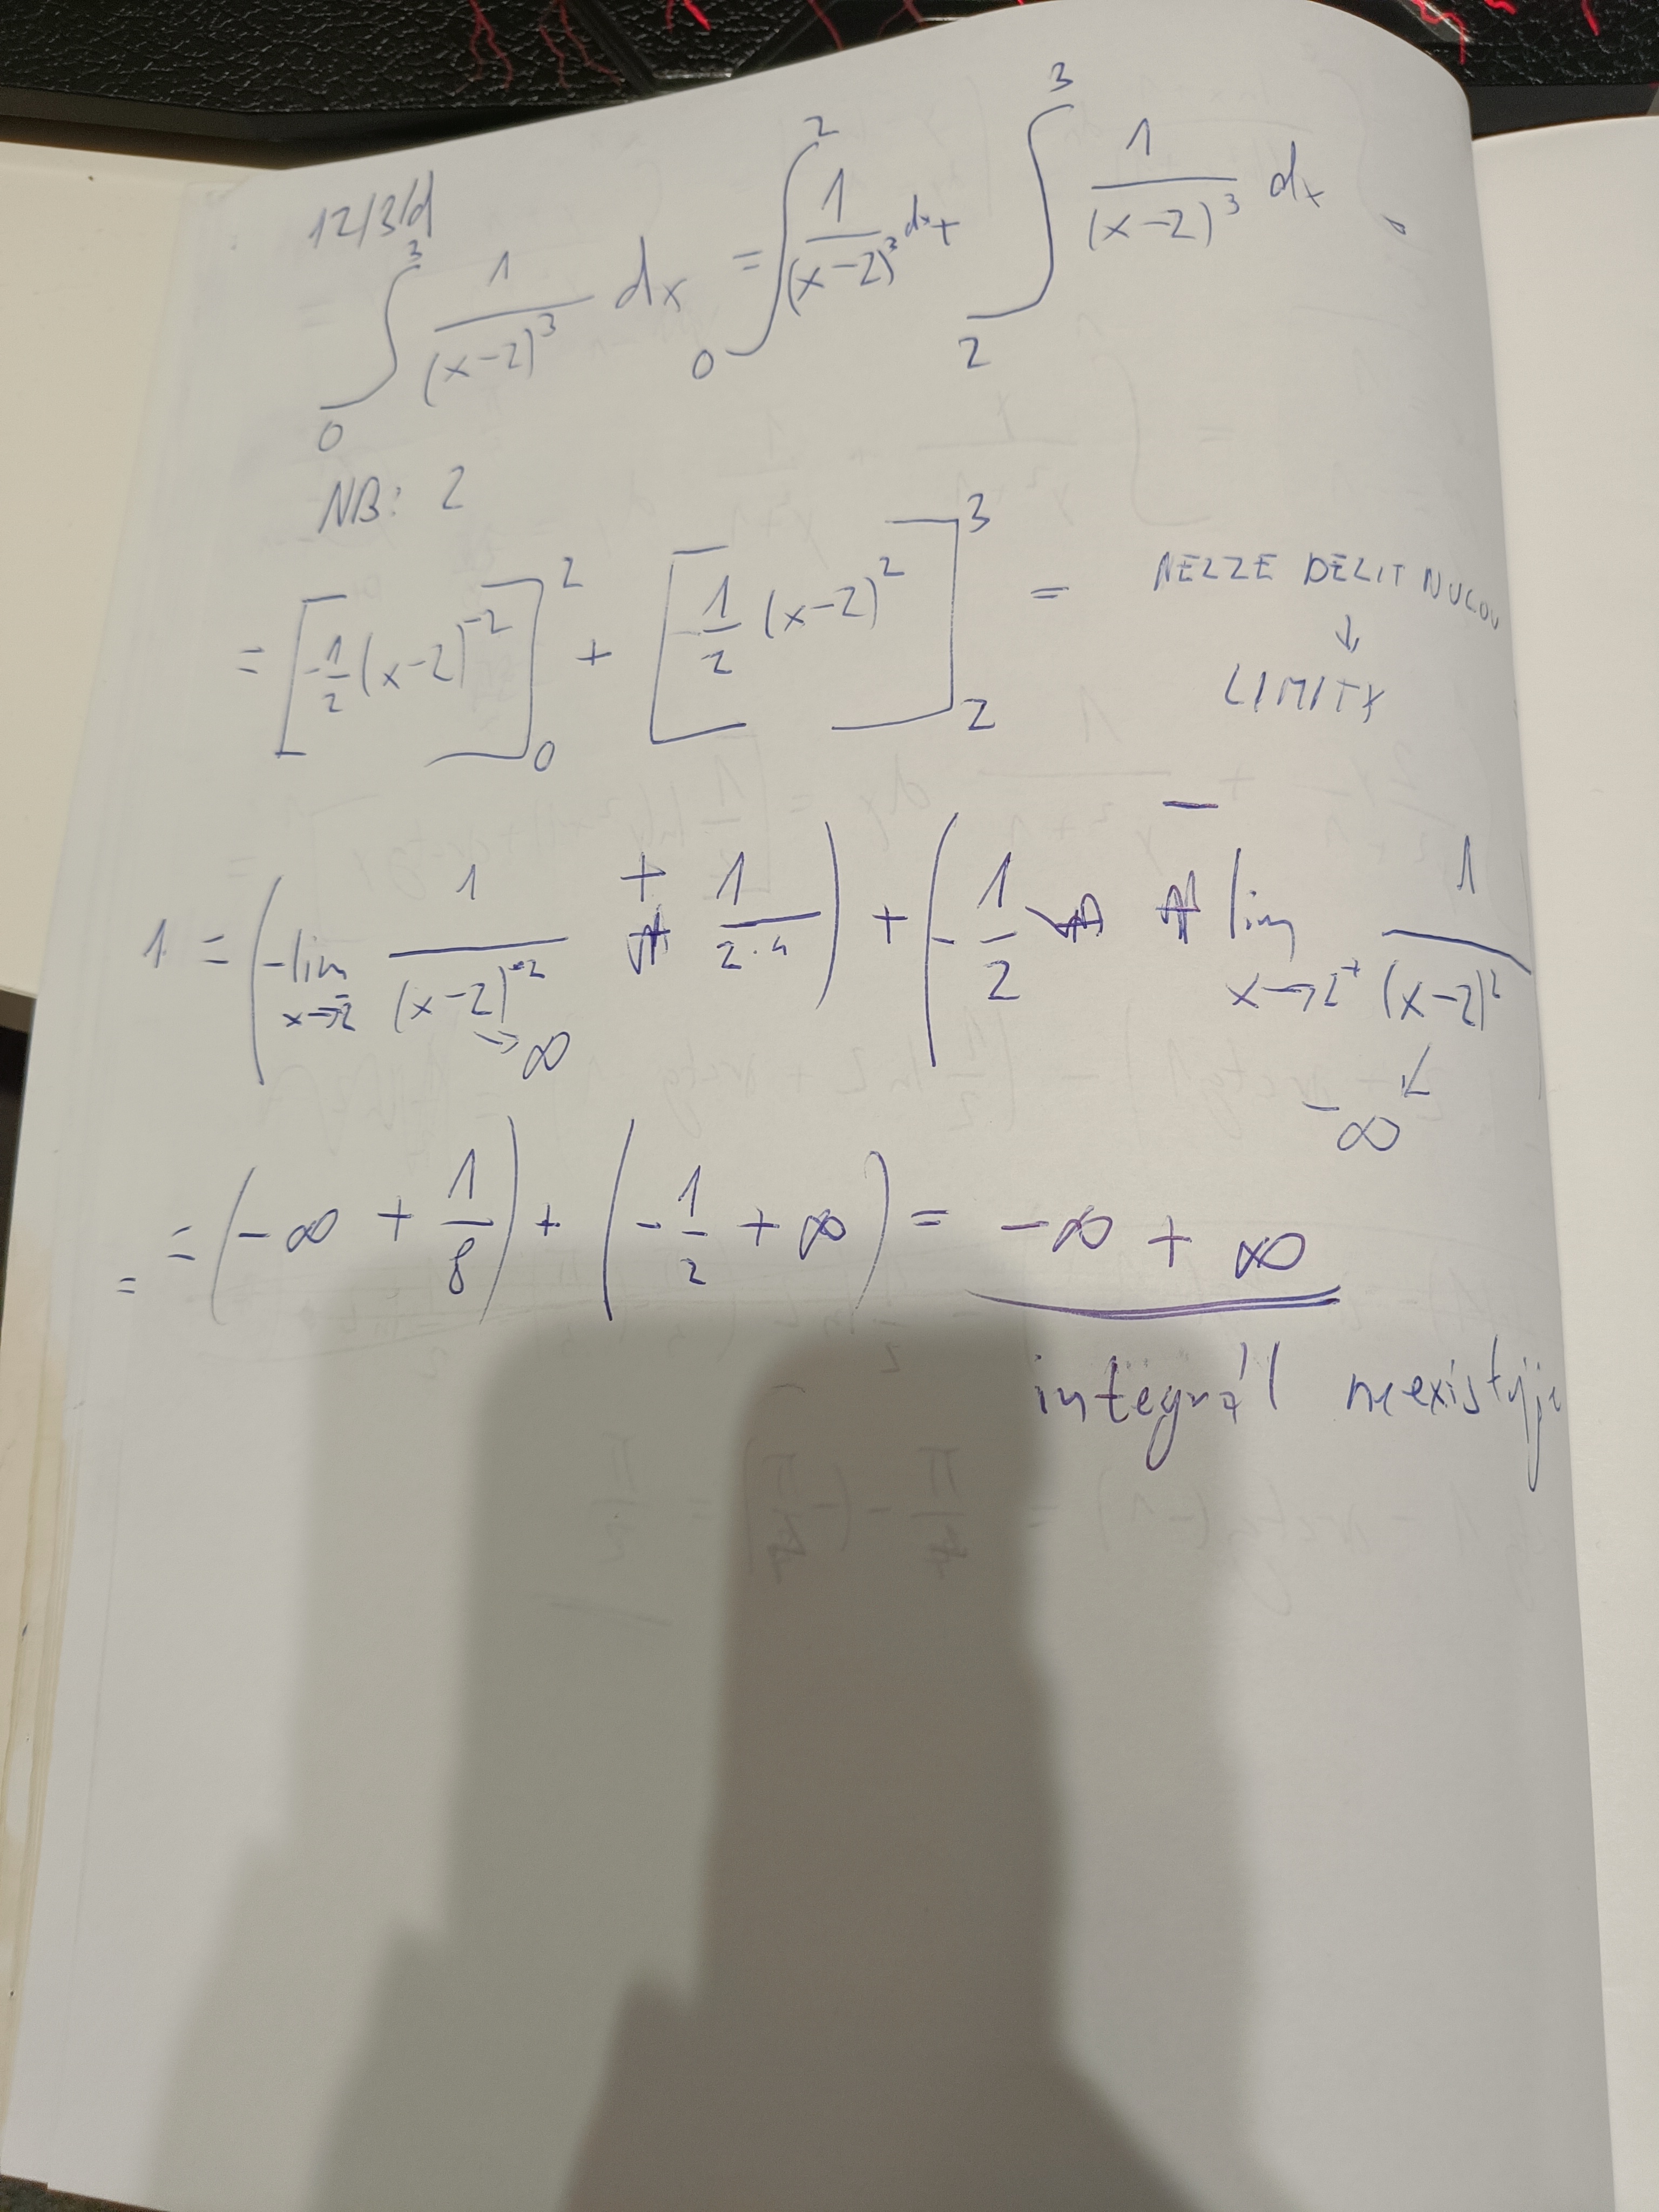 12/3/d
∫₀³ 1/(x-2)³ dx = ∫₀² 1/(x-2)³ dx + ∫₂³ 1/(x-2)³ dx
NB: 2
= [-1/2 (x-2)⁻²]₀² + [-1/2 (x-2)²]₂³ = NELZE DĚLIT NULOU
↓
LIMITY
1 = (-lim x→2⁻ 1/(x-2)⁻² + 1/(2·4)) + (-1/2 - lim x→2⁺ 1/(x-2)²)
→∞ -∞
= = (-∞ + 1/8) + (-1/2 + ∞) = -∞ + ∞
integrál neexistuje